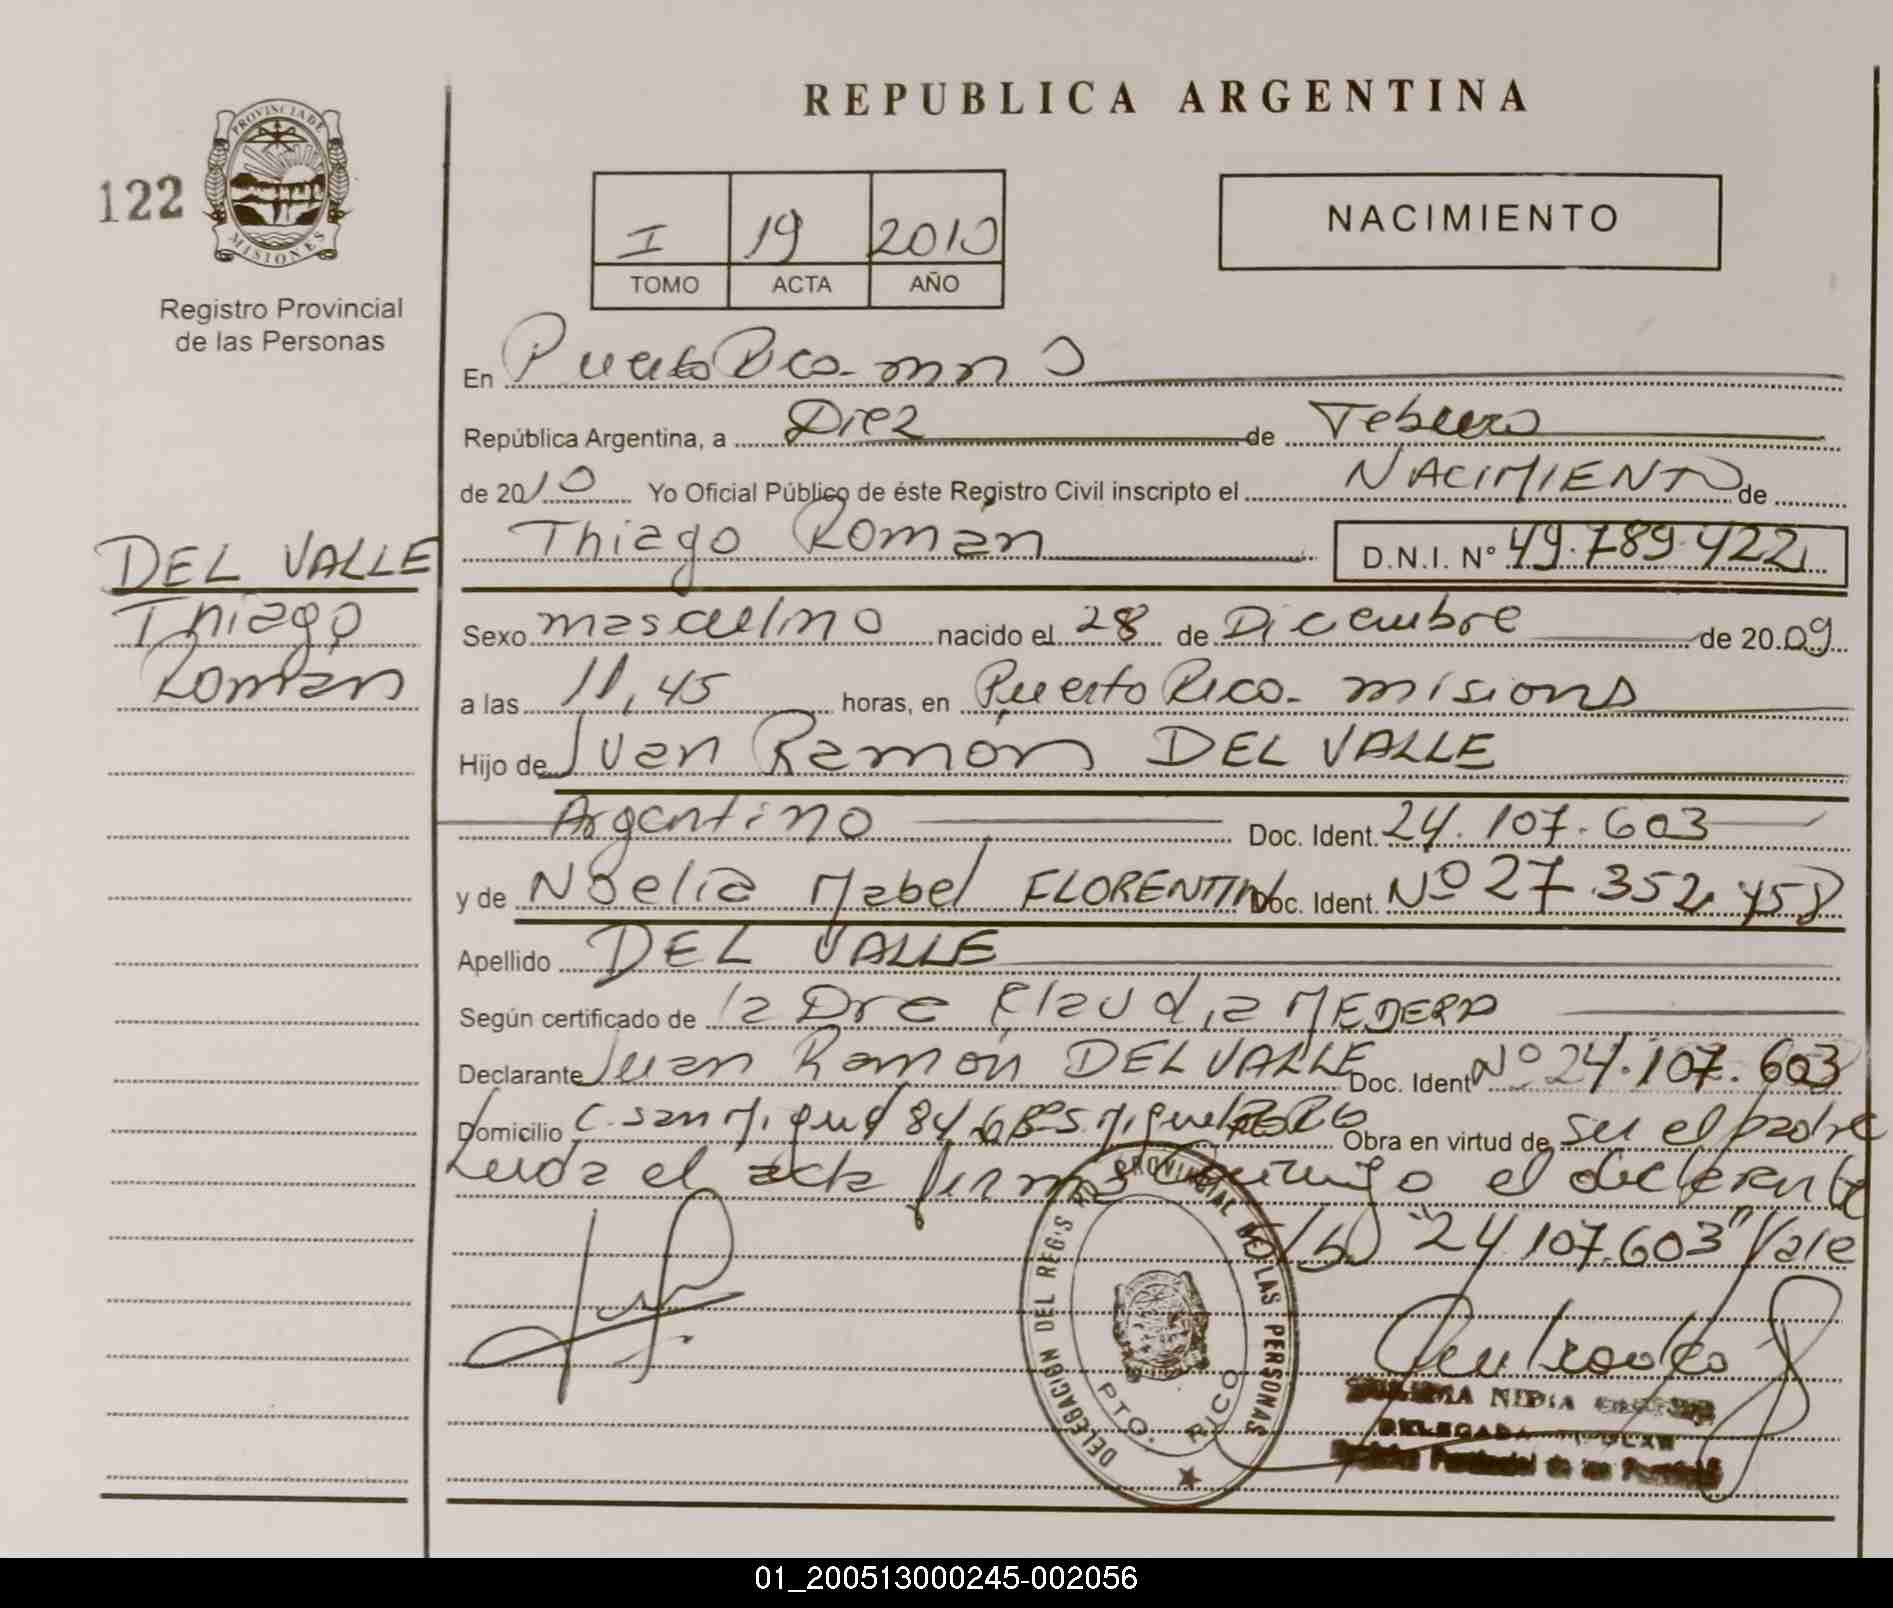 REPUBLICA ARGENTINA
PROVINCIA DE
MISIONES
122
Registro Provincial
de las Personas
I 19 2010
TOMO ACTA AÑO
NACIMIENTO
En Puerto Rico - mns
República Argentina, a Diez de Febrero
de 2010 Yo Oficial Público de éste Registro Civil inscripto el NACIMIENTO de
Thiago Román D.N.I. Nº 49.789.422
DEL VALLE
Thiago
Román
Sexo masculino nacido el 28 de Diciembre de 2009
a las 11,45 horas, en Puerto Rico - misions
Hijo de Juan Ramón DEL VALLE
Argentino Doc. Ident. 24.107.603
y de Noelia Mabel FLORENTIN Doc. Ident. Nº 27.352.458
Apellido DEL VALLE
Según certificado de la Dra Claudia MEDERA
Declarante Juan Ramón DEL VALLE Doc. Ident Nº 24.107.603
Domicilio C. San Miguel 84 Obra en virtud de ser el padre
Leída el acta firma conmigo el declarante
"24.107.603" Vale
DELEGACION DEL REG'S PROVINCIAL DE LAS PERSONAS
PTO. RICO
NIDIA
DELEGADA
Provincial de las Personas
01_200513000245-002056